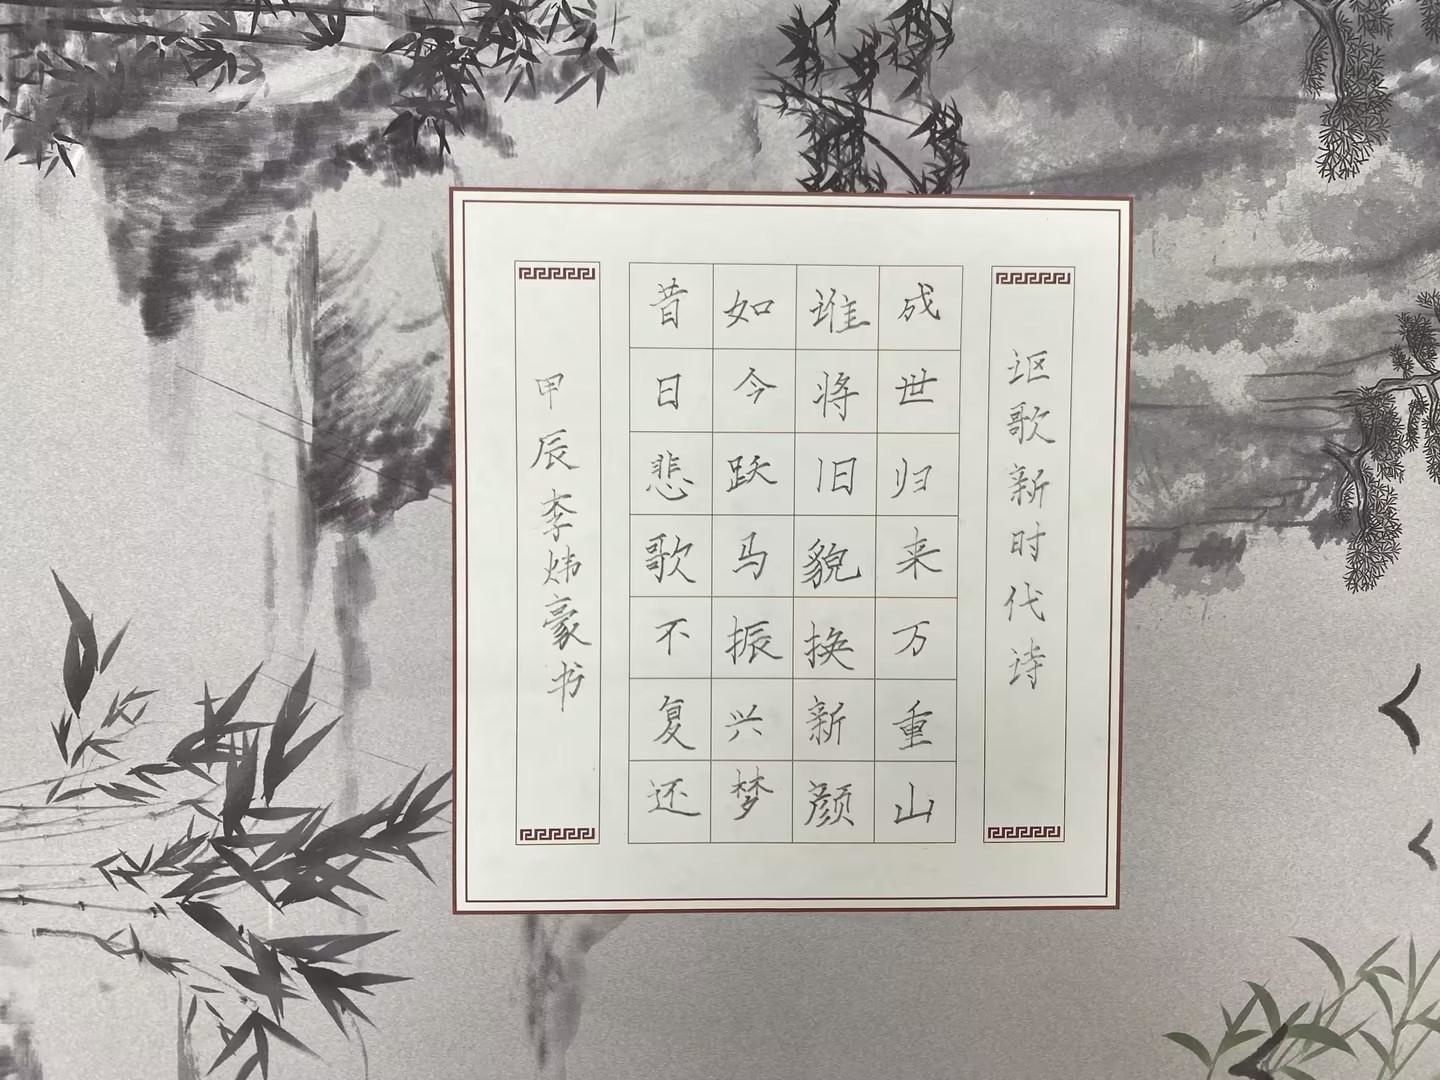 讴歌新时代诗
成世归来万重山
谁将旧貌换新颜
如今跃马振兴梦
昔日悲歌不复还
甲辰李炜豪书